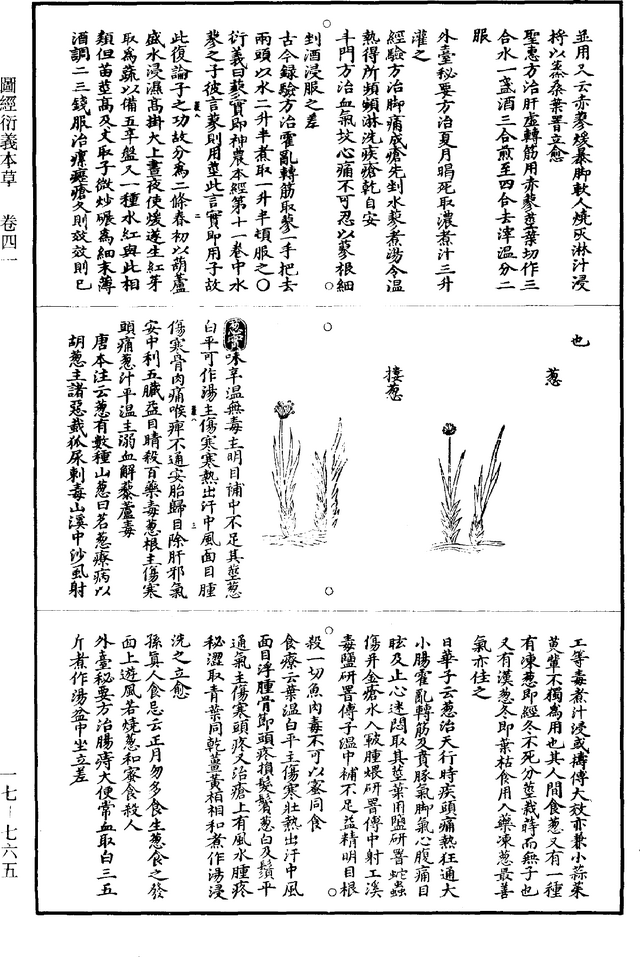 並用又云赤蓼煖暴脚軟人燒灰淋汁浸
持以蒸桑葉罯立愈
聖惠方治肝虛轉筋用赤蓼莖葉切作三
合水一盞酒三合煎至四合去滓溫分二
服
外臺秘要方治夏月暍死取濃煮汁三升
灌之
經驗方治脚痛成瘡先剉水蓼煮湯令溫
熱得所頻頻淋洗疾瘡乾自安
斗門方治血氣攻心痛不可忍以蓼根細
剉酒浸服之差
古今錄驗方治霍亂轉筋取蓼一手把去
兩頭以水二升半煮取一升半頓服之〇
衍義曰蓼實即神農本經第十一卷中水
蓼之子彼言蓼則用莖此言實即用子故
此復論子之功故分為二條春初以葫蘆
盛水浸濕高掛火上晝夜使煖遂生紅芽
取為蔬以備五辛盤又一種水紅與此相
類但苗莖高及丈取子微炒碾為細末薄
酒調二三錢服治瘰癧瘡久則效效則已
也
葱
樓葱
葱實味辛溫無毒主明目補中不足其莖葱
白平可作湯主傷寒寒熱出汗中風面目腫
傷寒骨肉痛喉痺不通安胎歸目除肝邪氣
安中利五臟益目睛殺百藥毒葱根主傷寒
頭痛葱汁平溫主溺血解藜蘆毒
唐本注云葱有數種山葱曰茖葱療病以
胡葱主諸惡載狐尿刺毒山溪中沙虱射
工等毒煮汁浸或擣傅大效亦兼小蒜茱
萸輩不獨為用也其人間食葱又有一種
有凍葱即經冬不死分莖栽蒔而無子也
又有漢葱冬即葉枯食用入藥凍葱最善
氣亦佳之
日華子云葱治天行時疾頭痛熱狂通大
小腸霍亂轉筋及賁豚氣脚氣心腹痛目
眩及止心迷悶取其莖葉用鹽研罯蛇蟲
傷并金瘡水入皸腫煨研罯傅中射工溪
毒鹽研罯傅子溫中補不足益精明目根
殺一切魚肉毒不可以蜜同食
食療云葉溫白平主傷寒壯熱出汗中風
面目浮腫骨節頭疼損髮鬢葱白及鬚平
通氣主傷寒頭疼又治瘡上有風水腫疼
秘澀取青葉同乾薑黃柏相和煮作湯浸
洗之立愈
孫真人食忌云正月勿多食生葱食之發
面上遊風若燒葱和蜜食殺人
外臺秘要方治腸痔大便常血取白三五
斤煮作湯盆中坐立差
圖經衍義本草　卷四一
一七－七六五